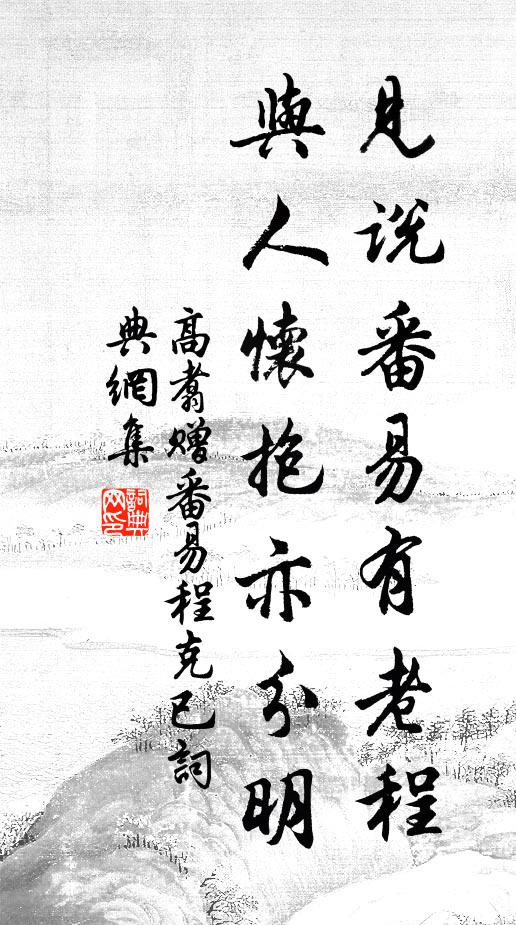 見說番易有老程
與人懷抱亦分明
高翥贈番易程克已詞
典網集
詞典
网印